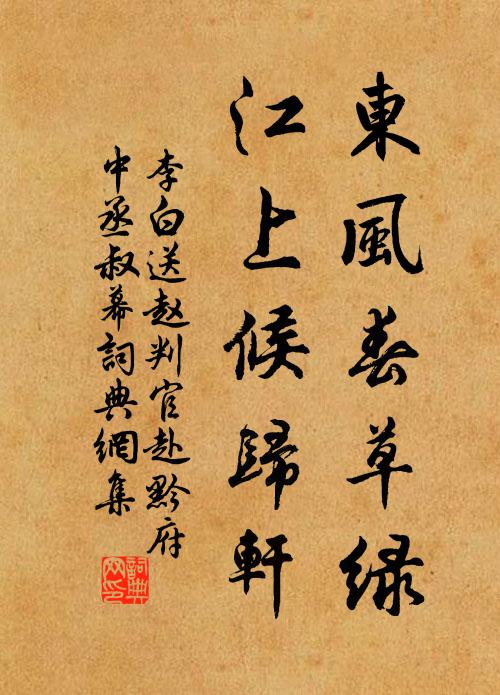 東風春草緑
江上候歸軒
李白送赵判官赴黔府
中丞叔幕詞典網集
詞典
网印